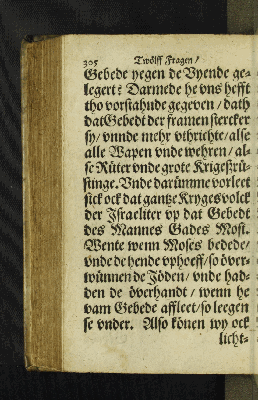 305 Twölff Fragen /
Gebede yegen de Vyende ge-
legert? Darmede he vns hefft
tho vorstahnde gegeven / dath
dat Gebedt der framen stercker
sy / vnnde mehr vthrichte / alse
alle Wapen vnde wehren / al-
se Rüter vnde grote Krigeßrü-
stinge. Vnde darümme vorleet
sick ock dat gantze Krygesvolck
der Jsraeliter vp dat Gebedt
des Mannes Gades Mosi.
Wente wenn Moses bedede /
vnde de hende vphoeff / so över-
wünnen de Jöden / vnde had-
den de överhandt / wenn he
vam Gebede affleet / so leegen
se vnder. Also könen wy ock
licht-